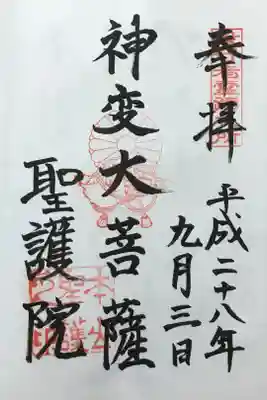 奉拝
平成二十八年
九月三日
神変大菩薩
聖護院